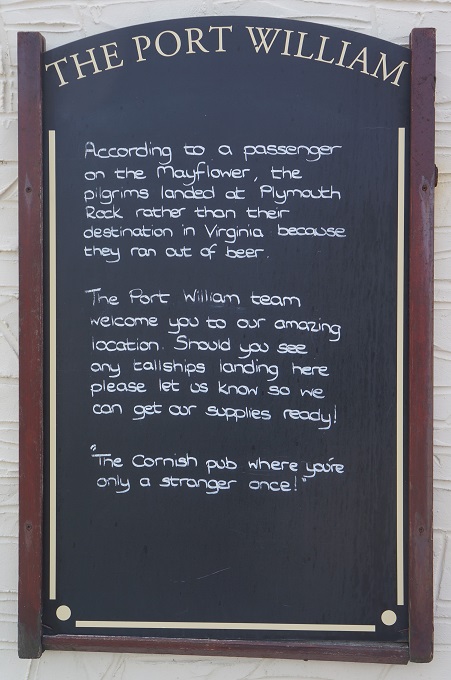 THE PORT WILLIAM
According to a passenger
on the Mayflower, the
pilgrims landed at Plymouth
Rock rather than their
destination in Virginia because
they ran out of beer.
The Port William team
welcome you to our amazing
location. Should you see
any tallships landing here
please let us know so we
can get our supplies ready!
"The Cornish pub where you're
only a stranger once!"